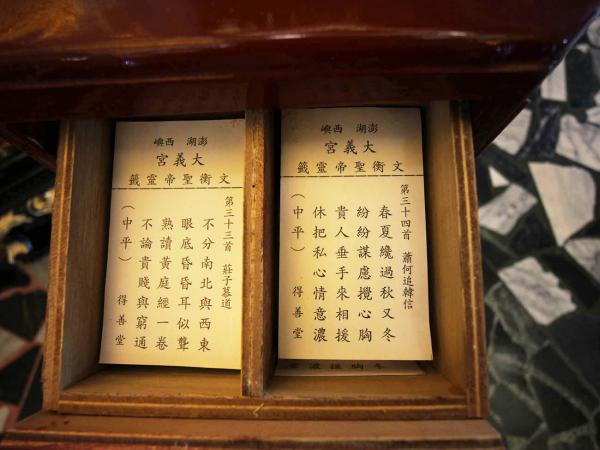 澎湖 西嶼
大義宮
文衡聖帝靈籤
第三十三首 莊子慕道
不分南北與西東
眼底昏昏耳似聾
熟讀黃庭經一卷
不論貴賤與窮通
（中平） 得善堂
澎湖 西嶼
大義宮
文衡聖帝靈籤
第三十四首 蕭何追韓信
春夏纔過秋又冬
紛紛謀慮攪心胸
貴人垂手來相援
休把私心情意濃
（中平） 得善堂